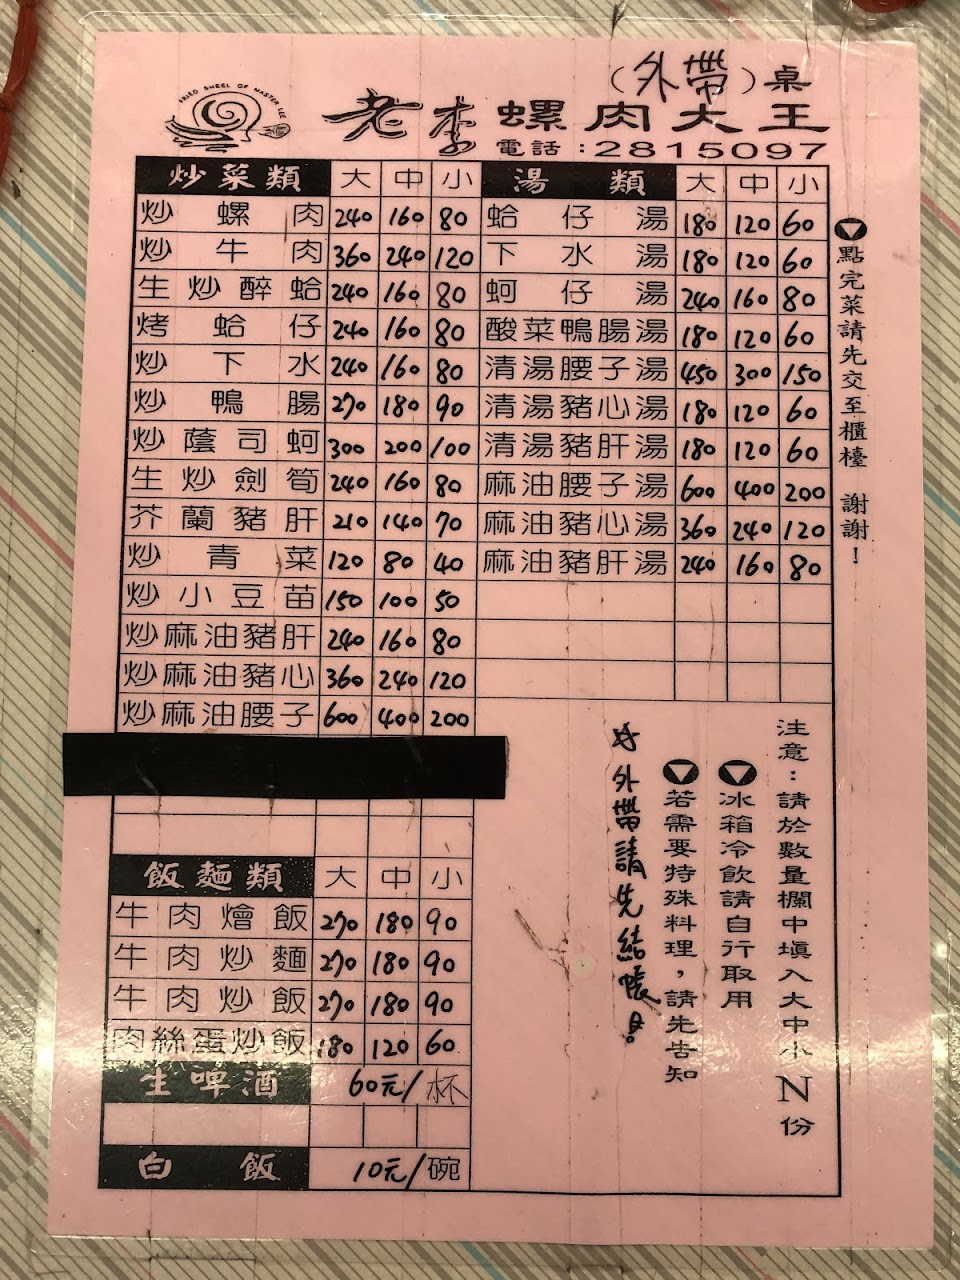 (外帶)桌
FRIED SHEEL OF MASTER LEE
老李螺肉大王
電話:2815097
炒菜類 大 中 小
炒螺肉 240 160 80
炒牛肉 360 240 120
生炒醉蛤 240 160 80
烤蛤仔 240 160 80
炒下水 240 160 80
炒鴨腸 270 180 90
炒蔭司蚵 300 200 100
生炒劍筍 240 160 80
芥蘭豬肝 210 140 70
炒青菜 120 80 40
炒小豆苗 150 100 50
炒麻油豬肝 240 160 80
炒麻油豬心 360 240 120
炒麻油腰子 600 400 200
飯麵類 大 中 小
牛肉燴飯 270 180 90
牛肉炒麵 270 180 90
牛肉炒飯 270 180 90
肉絲蛋炒飯 180 120 60
生啤酒 60元/杯
白飯 10元/碗
湯類 大 中 小
蛤仔湯 180 120 60
下水湯 180 120 60
蚵仔湯 240 160 80
酸菜鴨腸湯 180 120 60
清湯腰子湯 450 300 150
清湯豬心湯 180 120 60
清湯豬肝湯 180 120 60
麻油腰子湯 600 400 200
麻油豬心湯 360 240 120
麻油豬肝湯 240 160 80
點完菜請先交至櫃檯 謝謝!
注意:請於數量欄中填入大中小N份
冰箱冷飲請自行取用
若需要特殊料理,請先告知
外帶請先結帳。